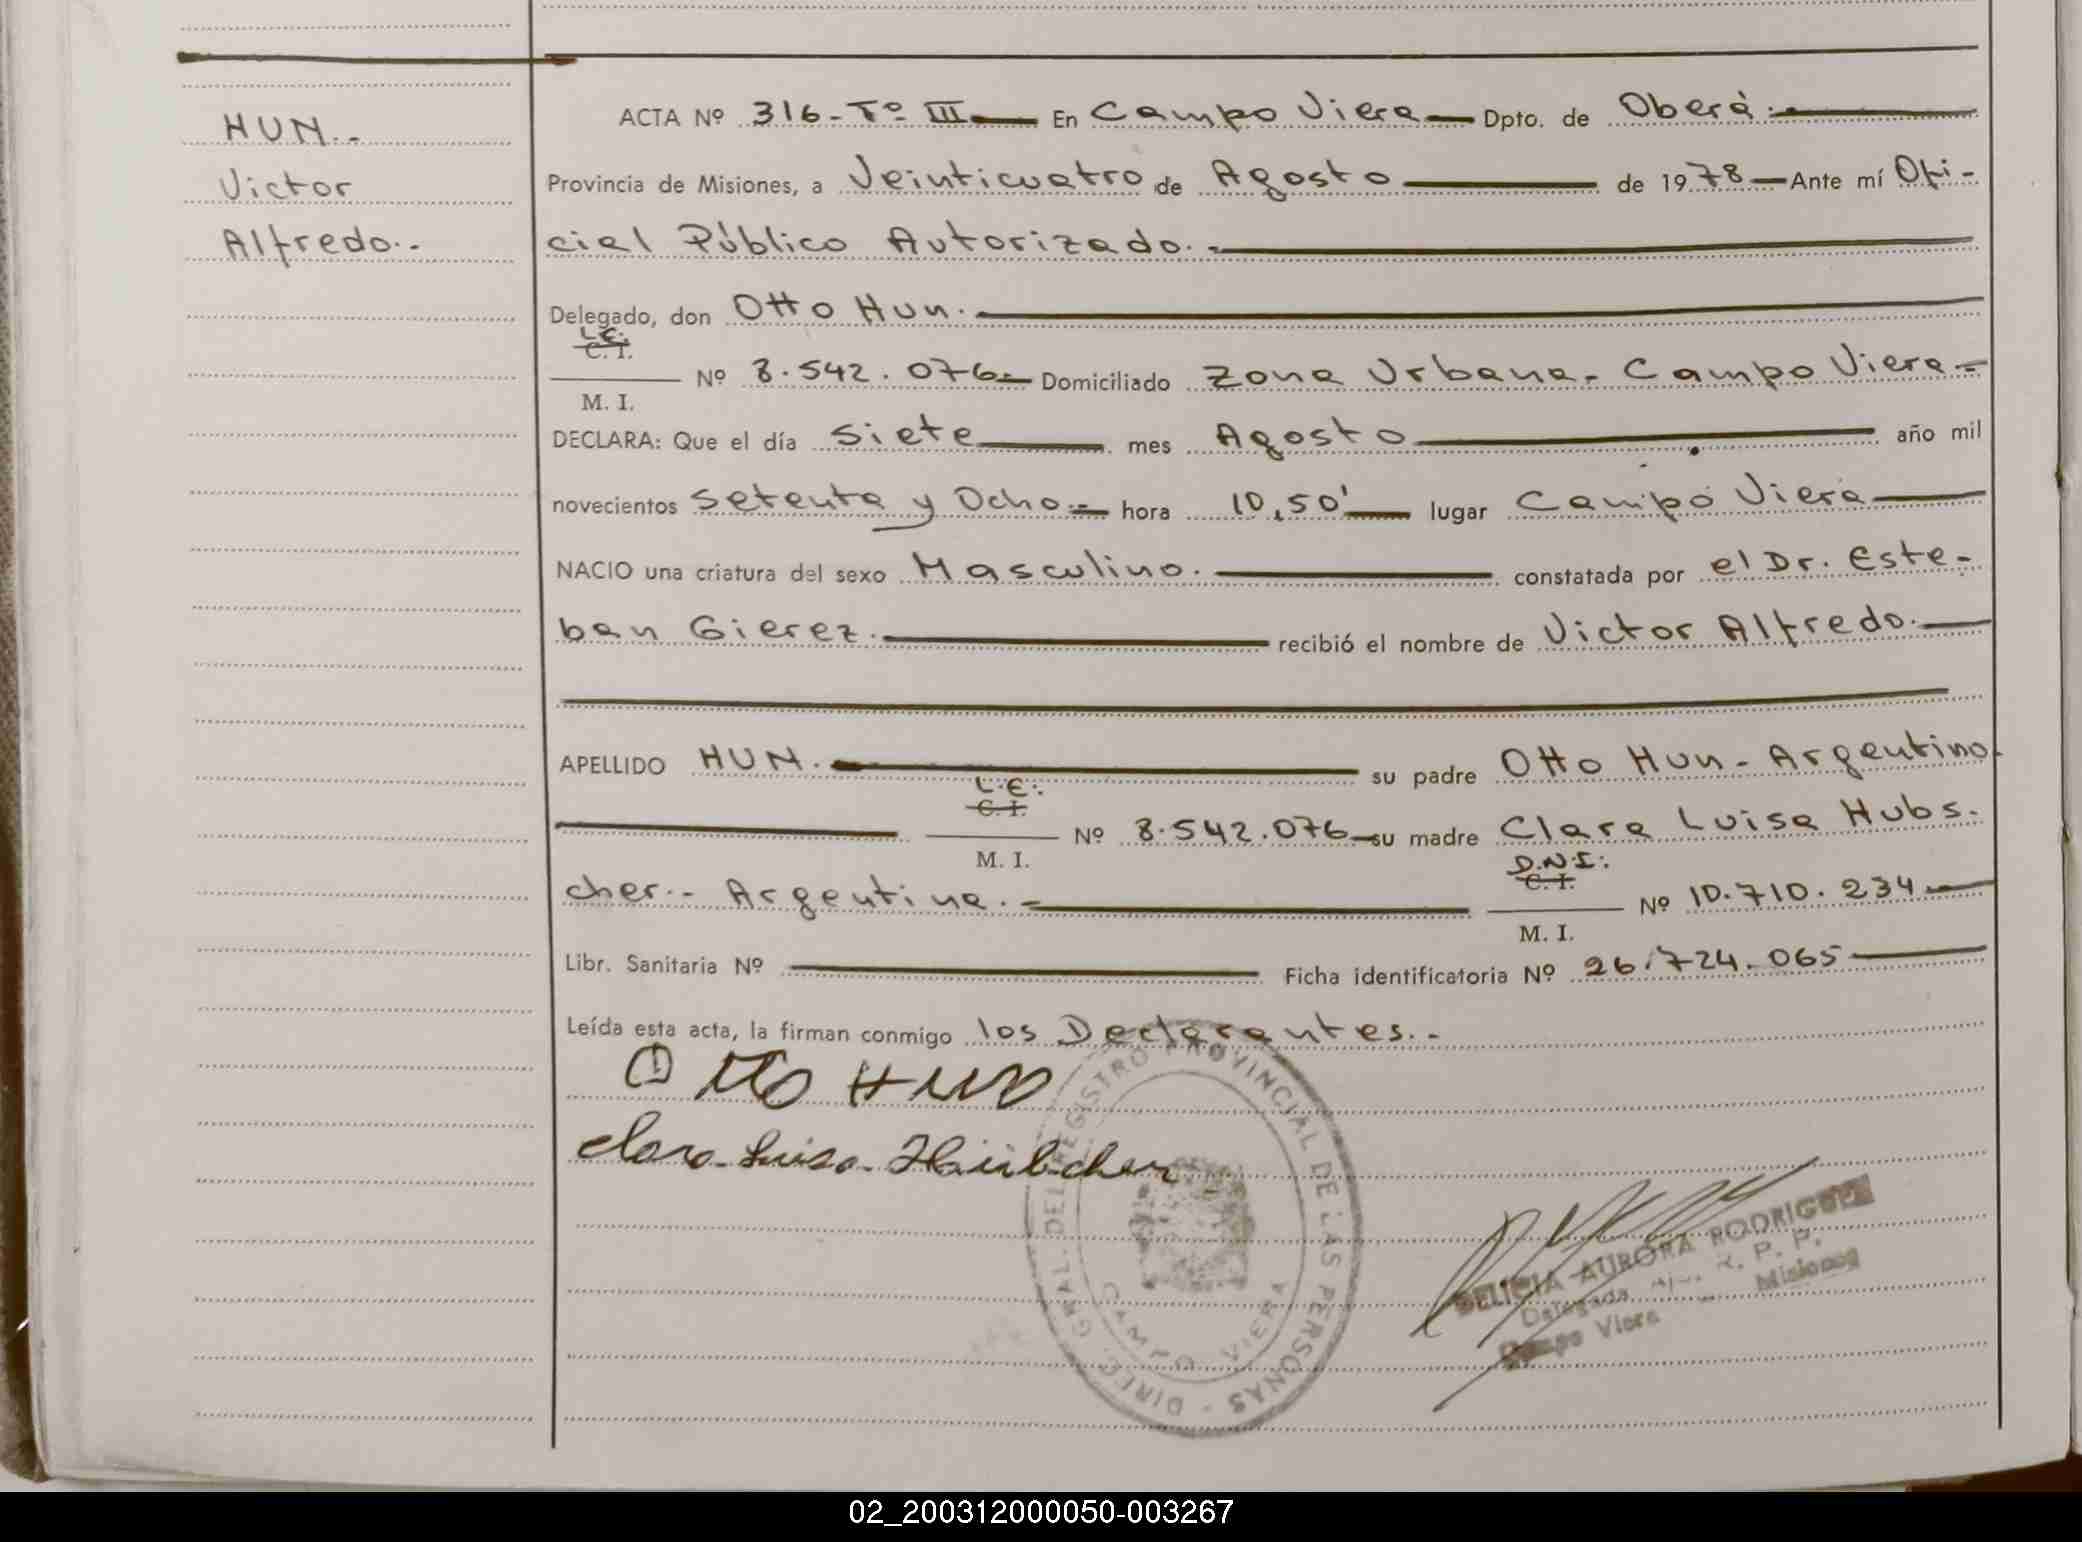 HUN.-
Victor
Alfredo.-
ACTA Nº 316- Tº III En Campo Viera Dpto. de Oberá.
Provincia de Misiones, a Veinticuatro de Agosto de 1978 Ante mí Ofi-
cial Público Autorizado.-
Delegado, don Otto Hun.
L.E.
C. I.
Nº 8.542.076- Domiciliado Zona Urbana- Campo Viera-
M. I.
DECLARA: Que el día Siete mes Agosto año mil
novecientos Setenta y Ocho.- hora 10,50' lugar Campo Viera
NACIO una criatura del sexo Masculino. constatada por el Dr. Este-
ban Gierez. recibió el nombre de Victor Alfredo.
APELLIDO HUN. su padre Otto Hun- Argentino.
L.E.
C. I.
Nº 8.542.076 su madre Clara Luisa Hubs.
M. I.
D.N.I.
C. I.
cher.- Argentina.- Nº 10.710.234
M. I.
Libr. Sanitaria Nº Ficha identificatoria Nº 26.724.065
Leída esta acta, la firman conmigo los Declarantes.-
Otto HUN
Clara Luisa Hübcher
DIREC. GRAL. DEL REGISTRO PROVINCIAL DE LAS PERSONAS -
CAMPO VIERA
DELICIA AURORA RODRIGUEZ
Delegada R. P. P.
Campo Viera - Misiones
02_200312000050-003267